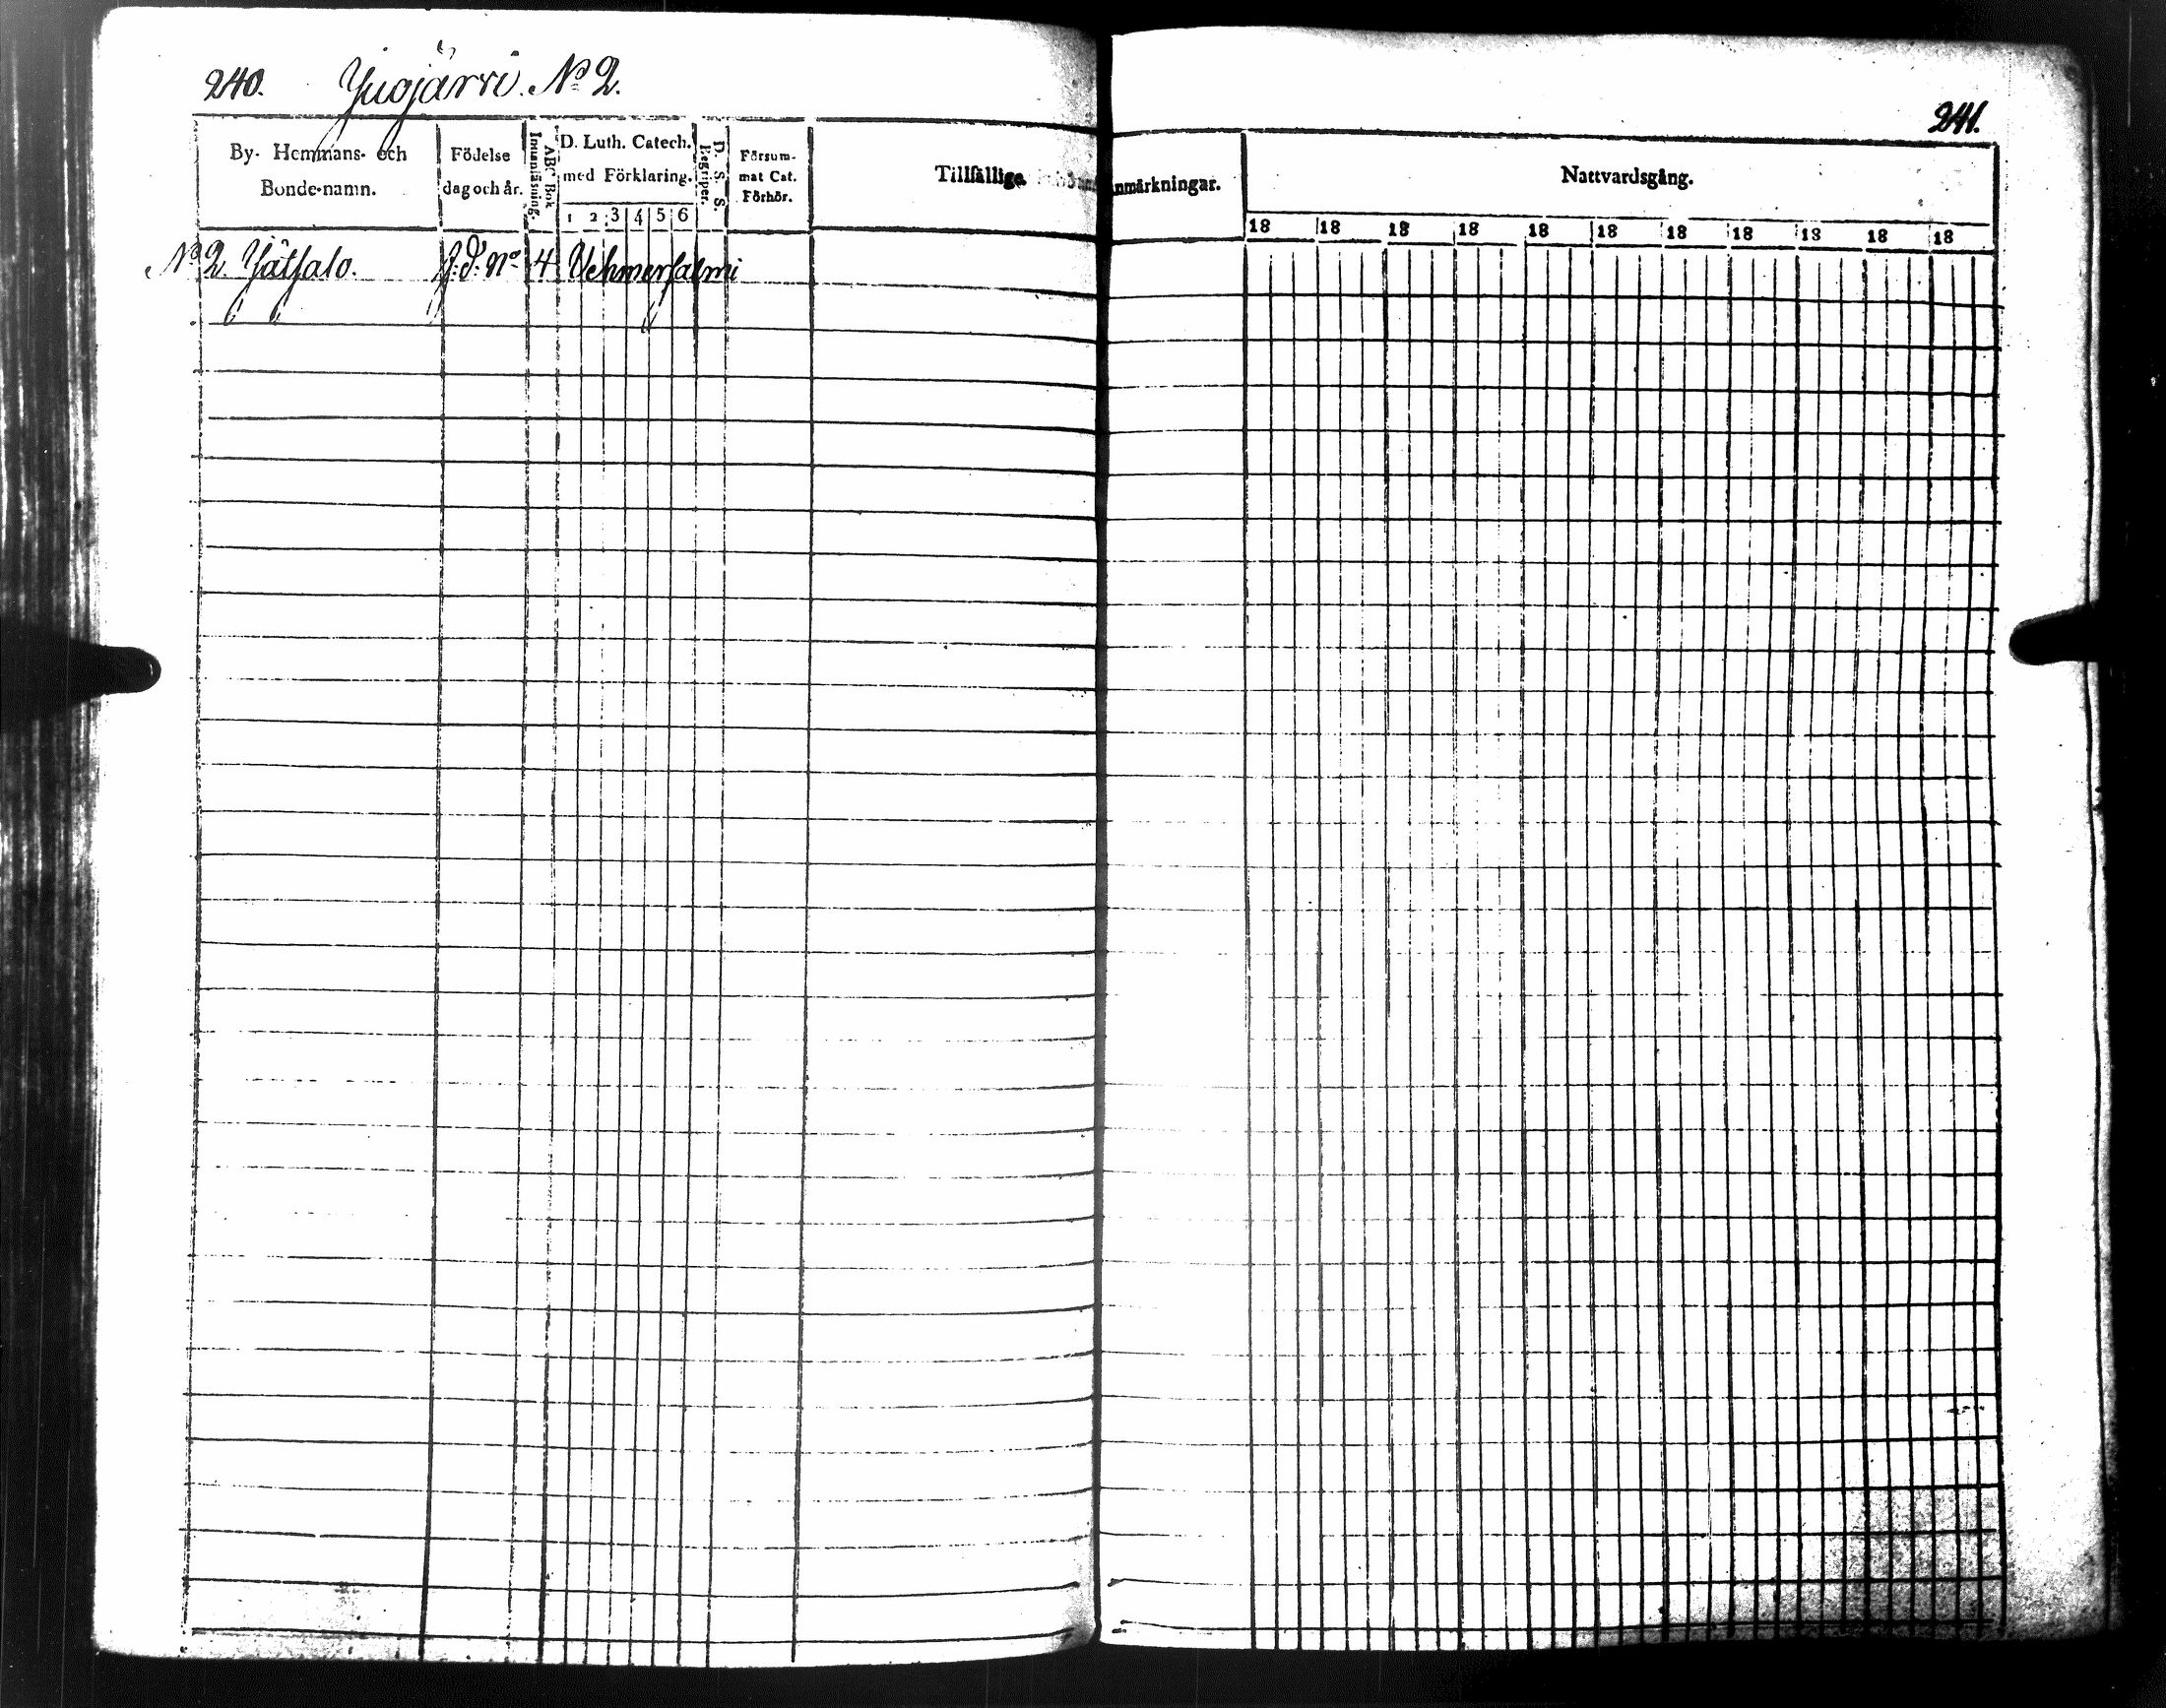 240. Jugjärvi. No 2.
By- Hemmans- och Bonde-namn.
Födelse dag och år.
ABC Bok Innanläsning.
D. Luth. Catech. med Förklaring.
1 2 3 4 5 6
D. S. S. Begriper.
Försum- mat Cat. Förhör.
Tillfällige
No 2. Jätsalo. J: d: No 4 Vehmersalmi
241.
nmärkningar.
Nattvardsgång.
18 18 18 18 18 18 18 18 18 18 18